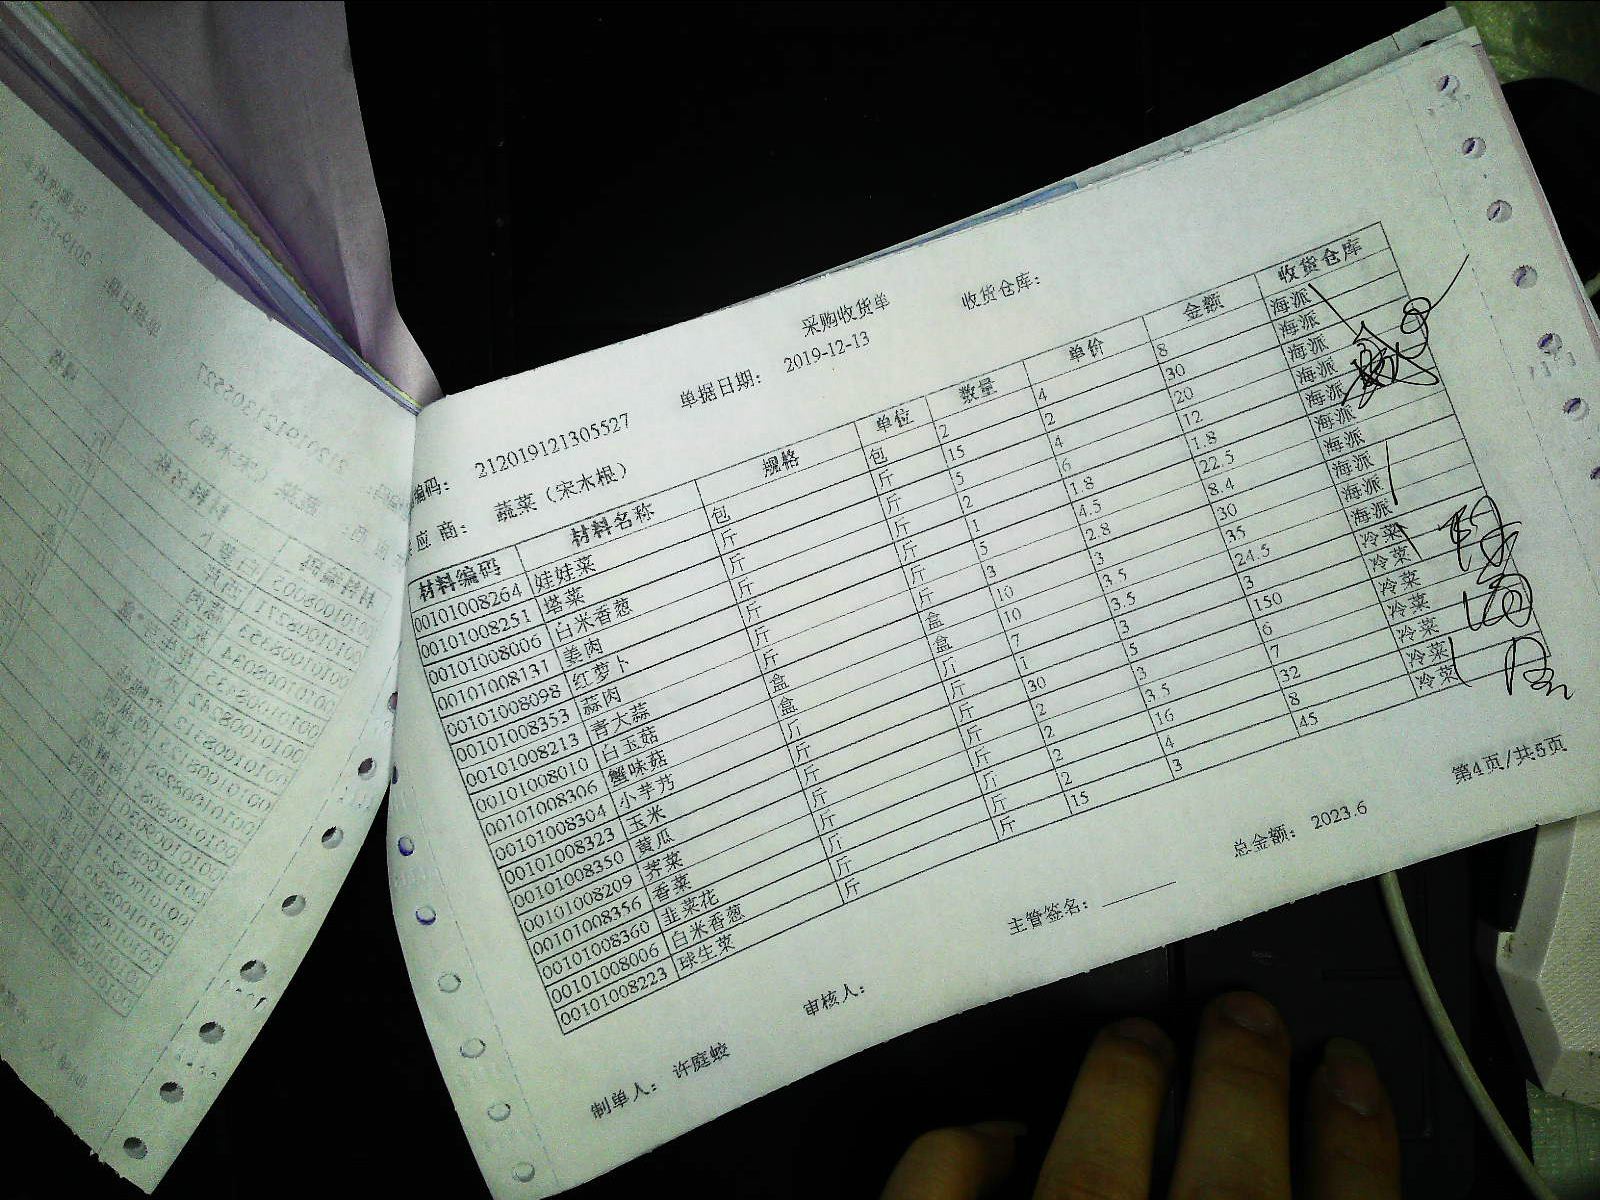 采购收货单
编码： 212019121305527 单据日期： 2019-12-13 收货仓库：
应 商： 蔬菜（宋木根）
材料编码 材料名称 规格 单位 数量 单价 金额 收货仓库
00101008264 娃娃菜 包 包 2 4 8 海派
00101008251 塔菜 斤 斤 15 2 30 海派
00101008006 白米香葱 斤 斤 5 4 20 海派
00101008131 姜肉 斤 斤 2 6 12 海派
00101008098 红萝卜 斤 斤 1 1.8 1.8 海派
00101008353 蒜肉 斤 斤 5 4.5 22.5 海派
00101008213 青大蒜 斤 斤 3 2.8 8.4 海派
00101008010 白玉菇 盒 盒 10 3 30 海派
00101008306 蟹味菇 盒 盒 10 3.5 35 海派
00101008304 小芋艿 斤 斤 7 3.5 24.5 海派
00101008323 玉米 斤 斤 1 3 3 冷菜
00101008350 黄瓜 斤 斤 30 5 150 冷菜
00101008209 荠菜 斤 斤 2 3 6 冷菜
00101008356 香菜 斤 斤 2 3.5 7 冷菜
00101008360 韭菜花 斤 斤 2 16 32 冷菜
00101008006 白米香葱 斤 斤 2 4 8 冷菜
00101008223 球生菜 斤 斤 15 3 45 冷菜
制单人： 许庭蛟 审核人： 主管签名： 总金额： 2023.6 第4页/共5页